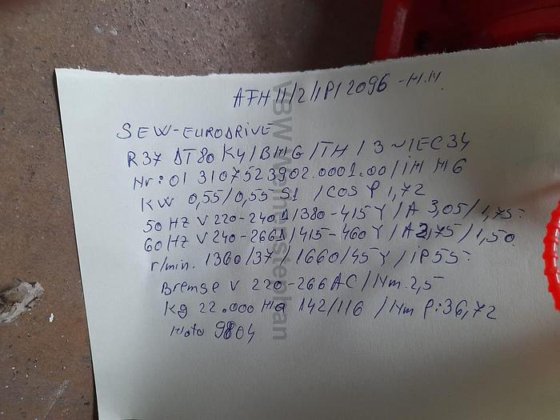 AFH 11/2/1P1 2096 -M.M
SEW-EURODRIVE
R37 DT80 K4/BMG/TH/3~IEC34
Nr: 01 3107523902.0001.00/iM M6
KW 0,55/0,55 S1/cos φ 1,72
50 HZ V 220-240Δ/380-415Y/A 3,05/1,75
60HZ V 240-266Δ/415-460Y/A 2,75/1,50
r/min. 1360/37/1660/45Y/iP55
Bremse V 220-266AC/Nm 2,5
Kg 22.000 Ma 142/116 /Nm i:36,72
9804